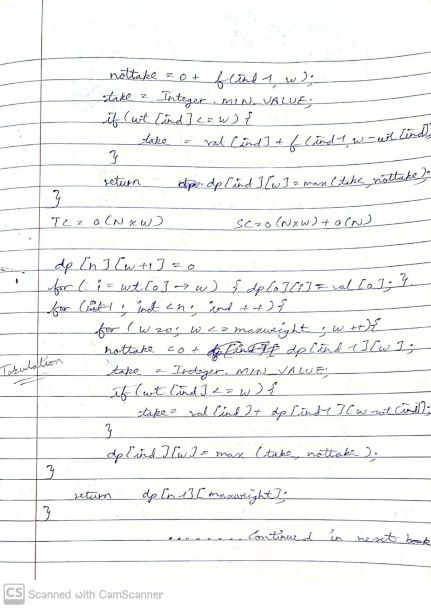 nottake = 0 + f(ind-1, w);
take = Integer.MIN_VALUE;
if (wt[ind] <= w) {
take = val[ind] + f(ind-1, w-wt[ind])
}
return dp[ind][w] = max(take, nottake);
}
TC = O(N×W) SC = O(N×W) + O(N)
dp[n][w+1] = 0
for (i = wt[0] → w) { dp[0][i] = val[0]; }
for (ind=1; ind < n; ind++) {
for (w=0; w <= maxweight; w++) {
nottake = 0 + dp[ind-1][w];
Tabulation
take = Integer.MIN_VALUE;
if (wt[ind] <= w) {
take = val[ind] + dp[ind-1][w-wt[ind]];
}
dp[ind][w] = max(take, nottake);
}
return dp[n-1][maxweight];
}
........ Continued in next book
CS Scanned with CamScanner